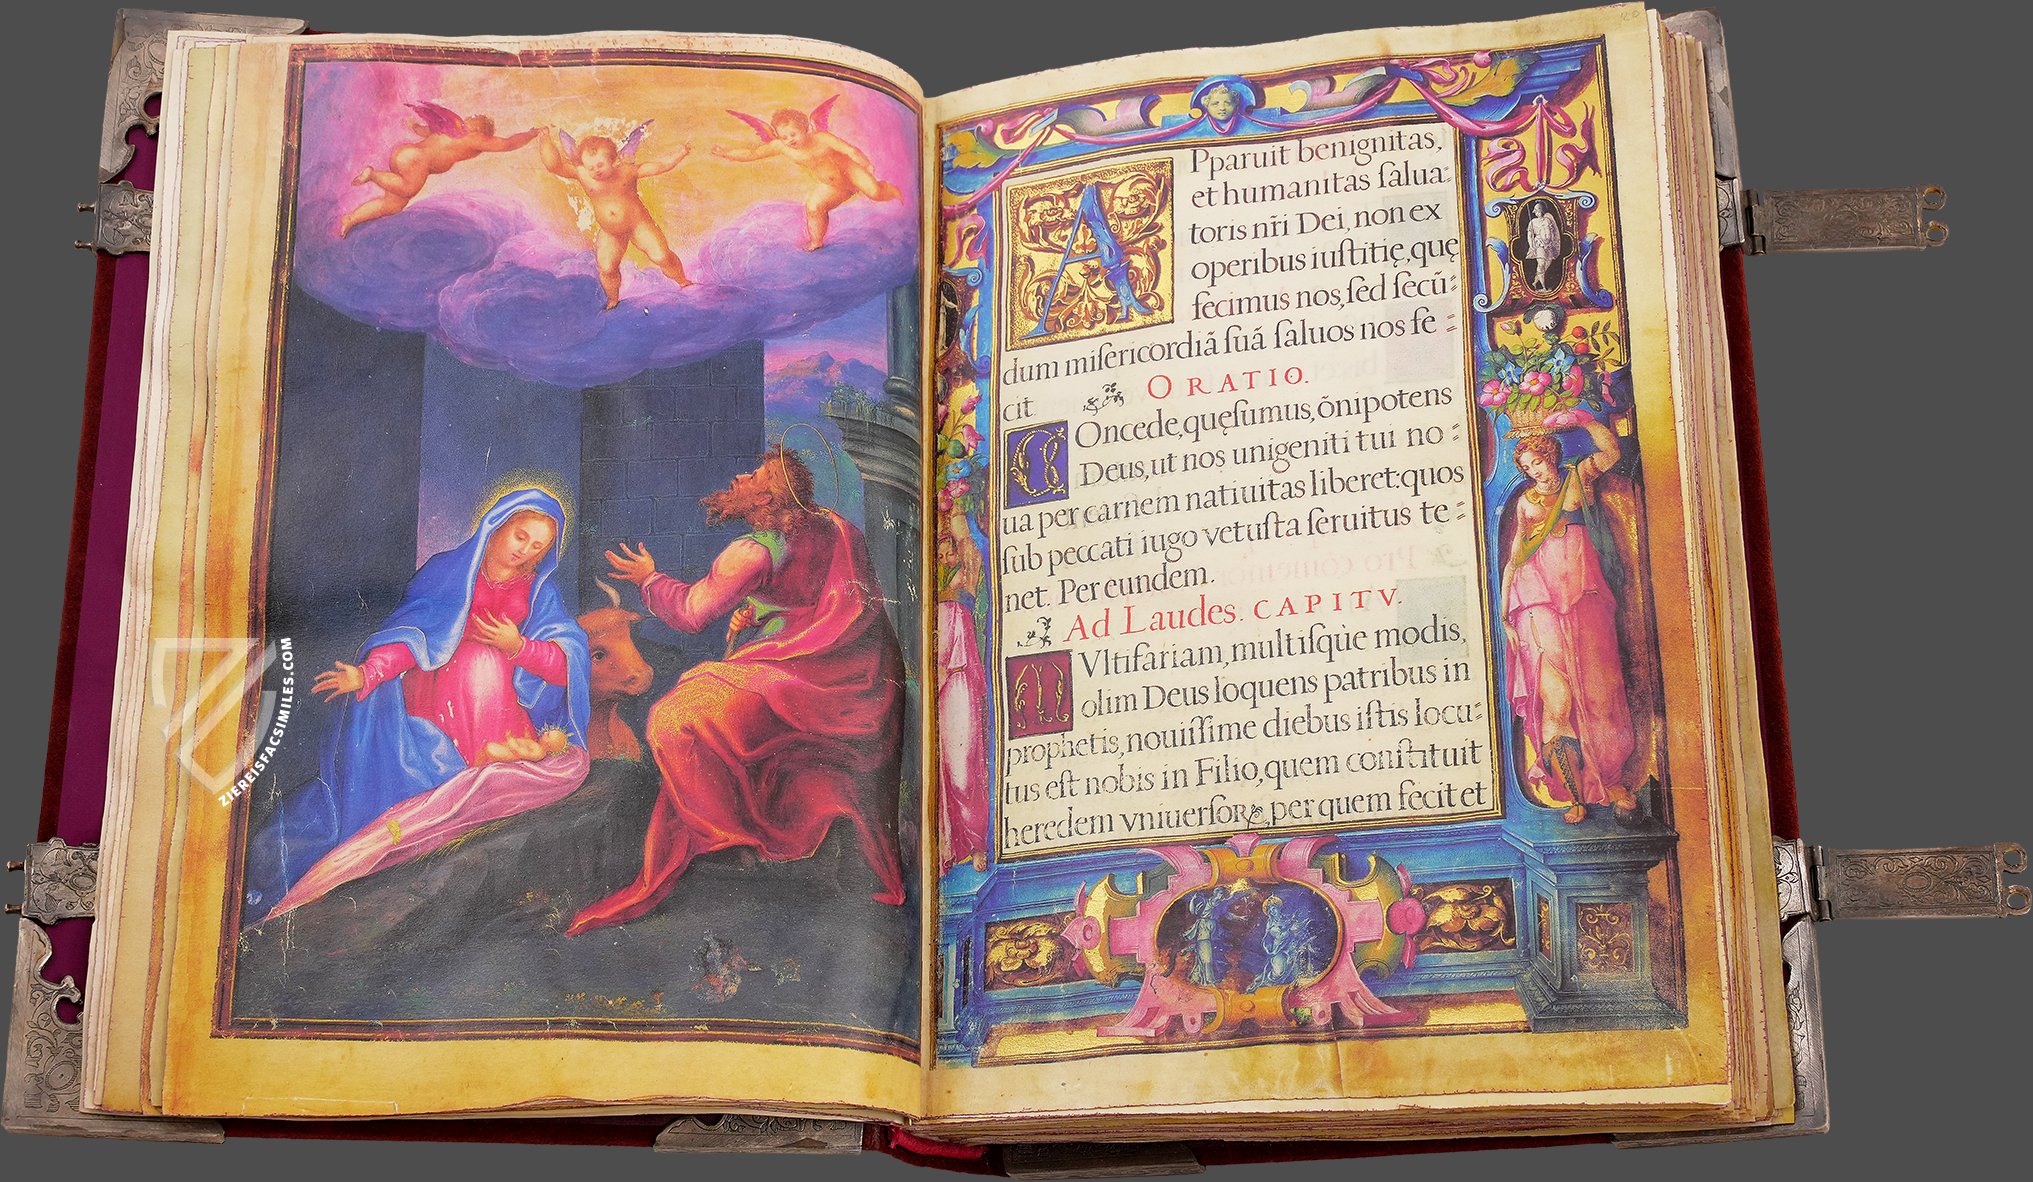 ZIEREISFACSIMILES.COM
APparuit benignitas,
et humanitas ſalua:
toris nr̃i Dei, non ex
operibus iuſtitię, quę
fecimus nos, ſed ſecũ:
dum miſericordiã ſuã ſaluos nos fe:
cit
ORATIO.
COncede, quęſumus, õnipotens
Deus, ut nos unigeniti tui no:
ua per carnem natiuitas liberet: quos
ſub peccati iugo vetuſta ſeruitus te:
net. Per eundem.
Ad Laudes. CAPITV.
MVltifariam, multiſque modis,
olim Deus loquens patribus in
prophetis, nouiſſime diebus iſtis locu:
tus eſt nobis in Filio, quem conſtituit
heredem vniuerſoꝝ, per quem fecit et